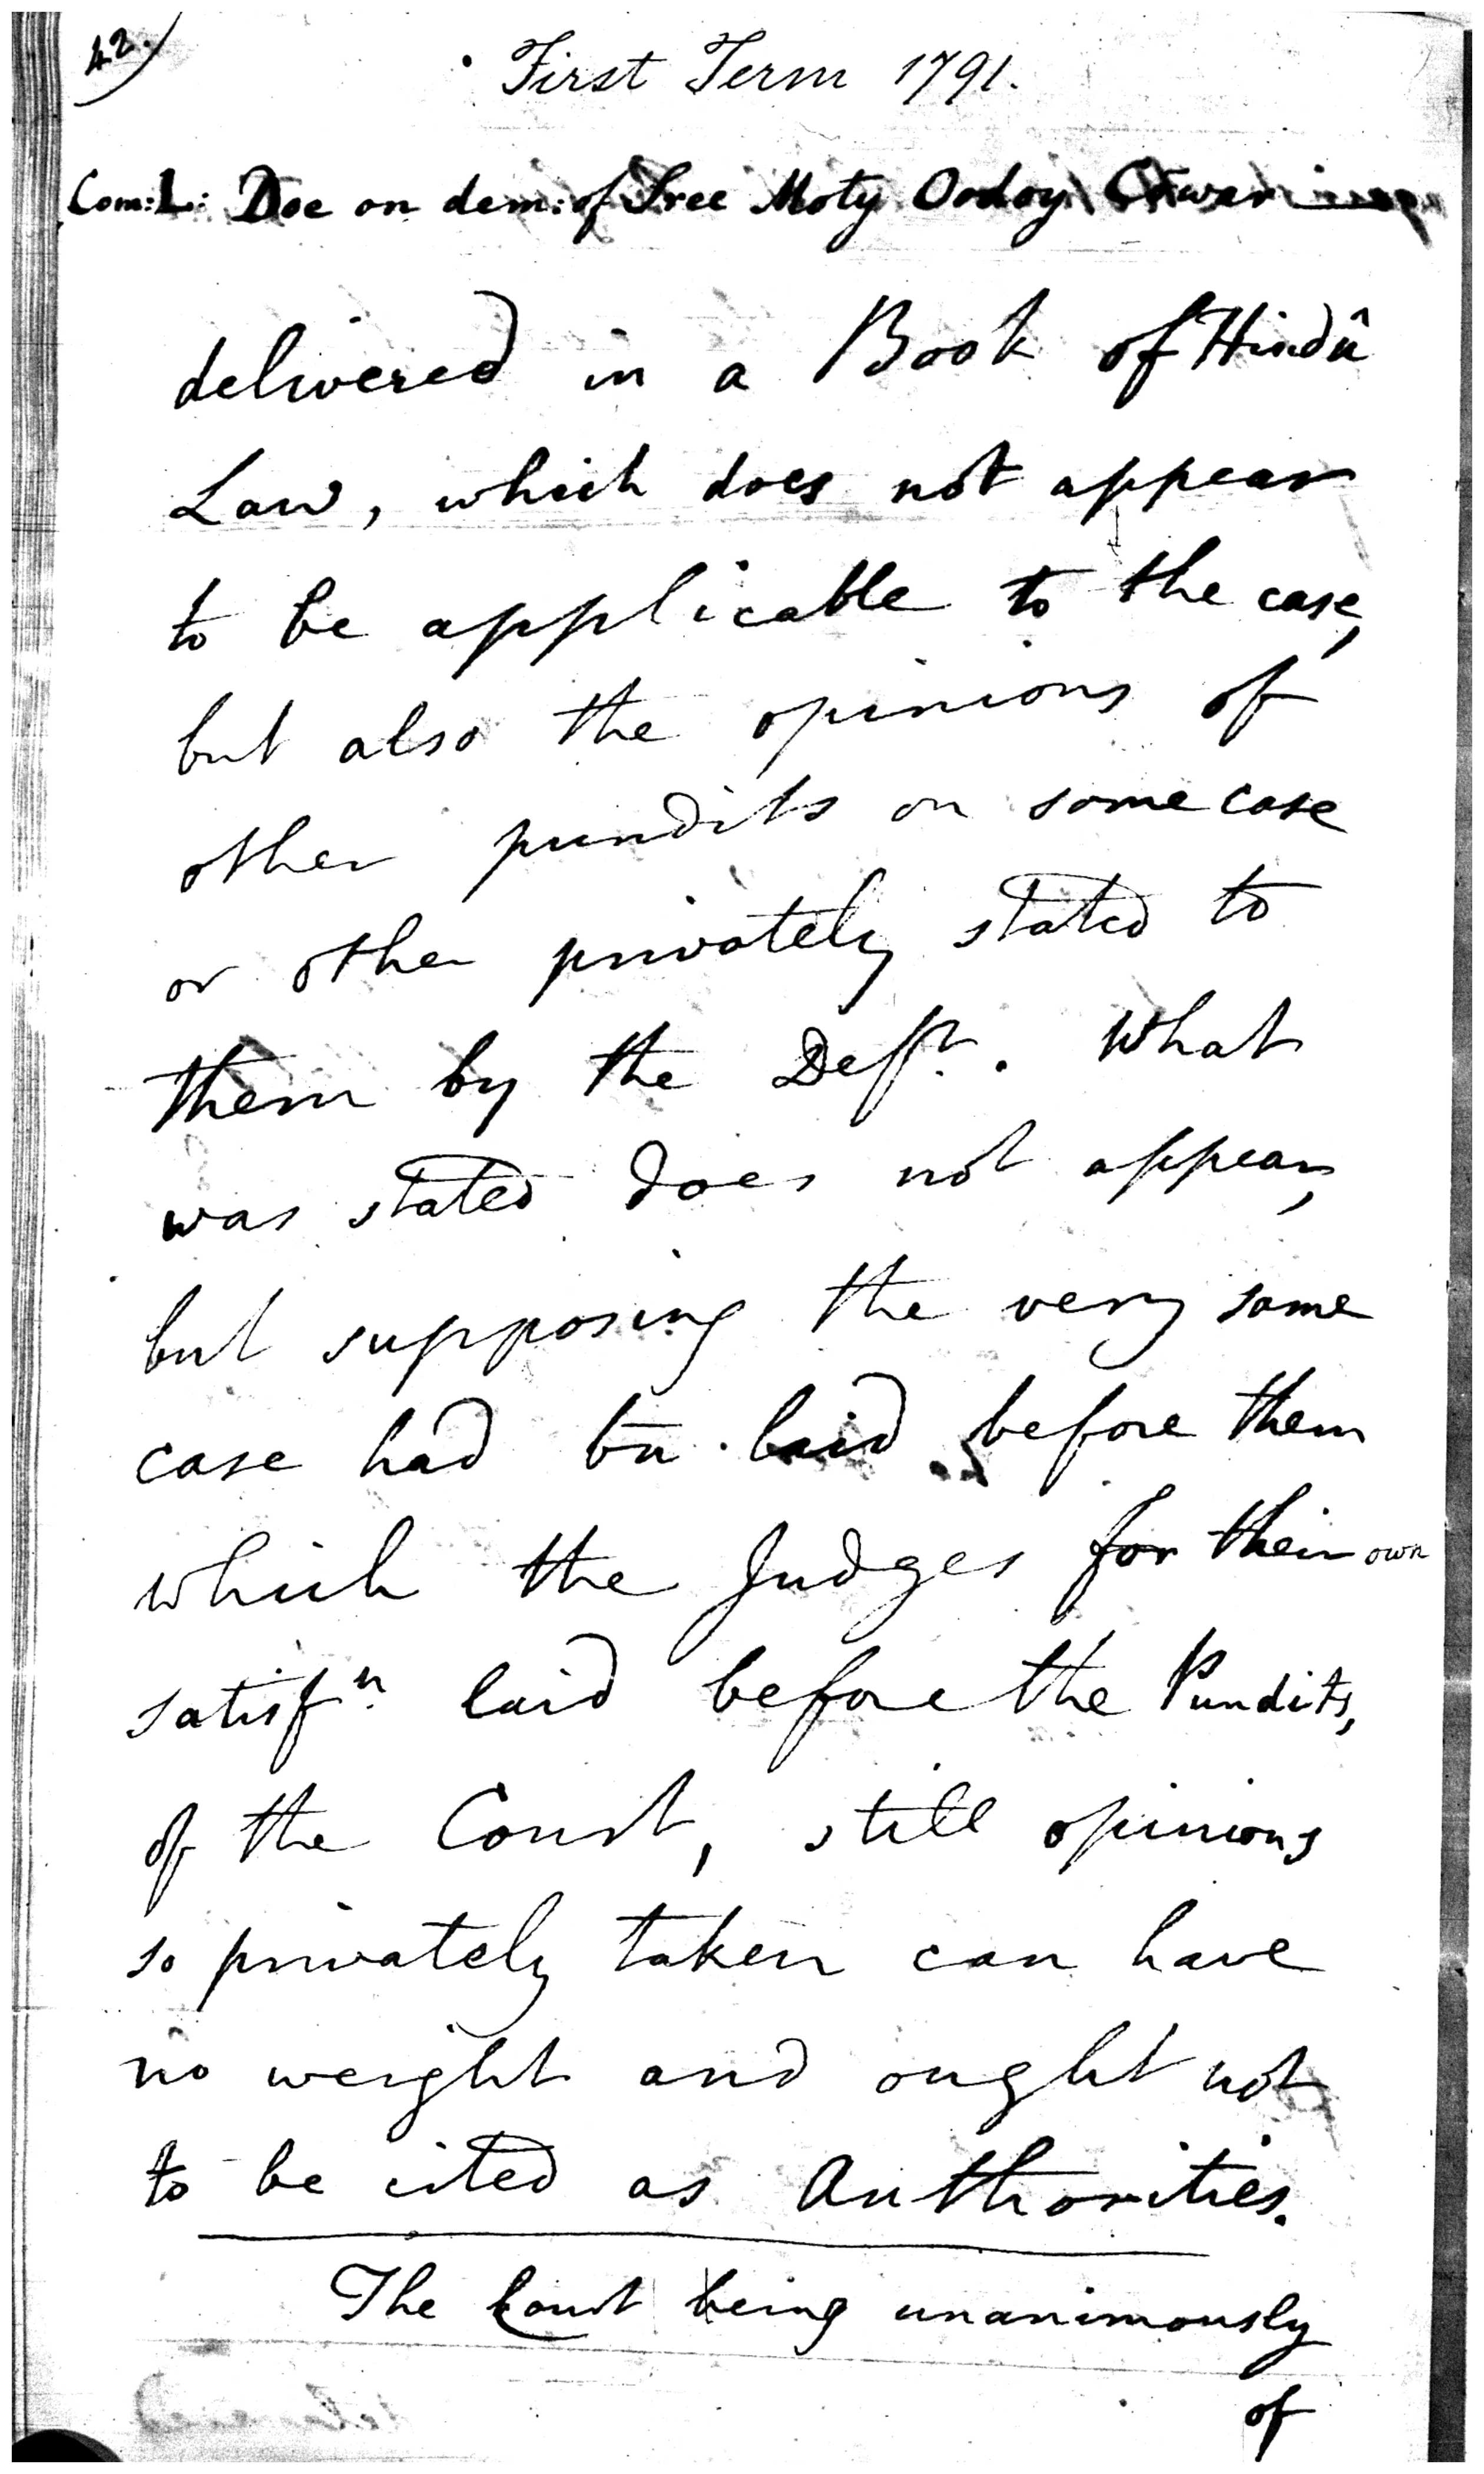 42.)
First Term 1791.
Com: L: Doe on dem: of Sree Moty Ordoy Cower
delivered in a Book of Hindû
Law, which does not appear
to be applicable to the case,
but also the opinions of
other pundits on some case
or other privately stated to
them by the Deft. What
was stated does not appear,
but supposing the very same
case had bn laid before them
which the Judges for their own
satisfn. laid before the Pundits,
of the Court, still opinions
so privately taken can have
no weight and ought not
to be cited as Authorities.
The Court being unanimously
of